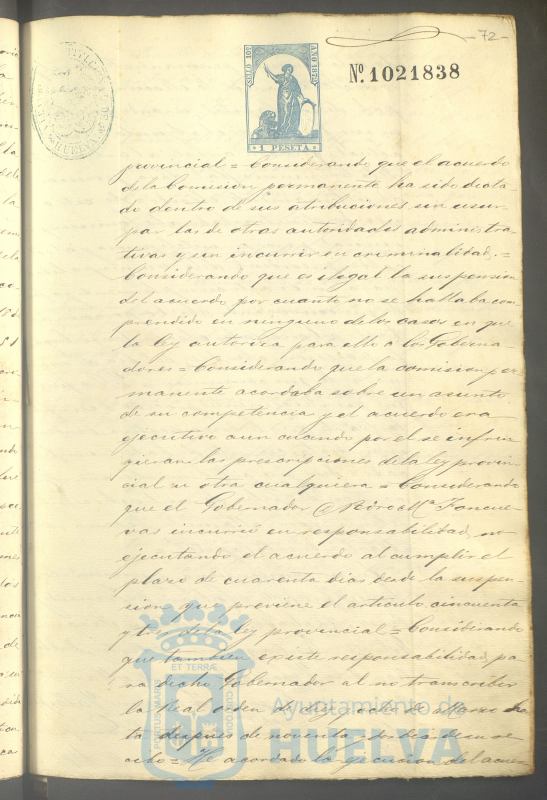 72
SELLO 10º AÑO 1872
1 PESETA
Nº 1021838
provincial = Considerando que el acuerdo
de la Comision permanente ha sido dicta-
do dentro de sus atribuciones sin usur-
par las de otras autoridades administra-
tivas y sin incurrir en criminalidad. =
Considerando que es ilegal la suspension
del acuerdo por cuanto no se hallaba com-
prendido en ninguno de los casos en que
la ley autoriza para ello a los Goberna-
dores = Considerando que la comision per
manente acordaba sobre un asunto
de su competencia y el acuerdo era
ejecutivo aun cuando por el se infrin
gieran las prescripciones de la ley provin
cial u otra cualquiera = Considerando
que el Gobernador
vas incurrió en responsabilidad, no
ejecutando el acuerdo al cumplir el
plazo de cuarenta dias desde la suspen-
sion que previene el articulo cincuenta
y tres de la ley provincial = Considerando
que tambien existe responsabilidad pa
ra dicho Gobernador al no transcribir
la Real orden de diez y ocho de Marzo has
ta despues de noventa dias de su re
cibo = He acordado la ejecucion del acuer
ET TERRÆ
PORTUS MARIS
CUSTODIA
Ayuntamiento de
HUELVA